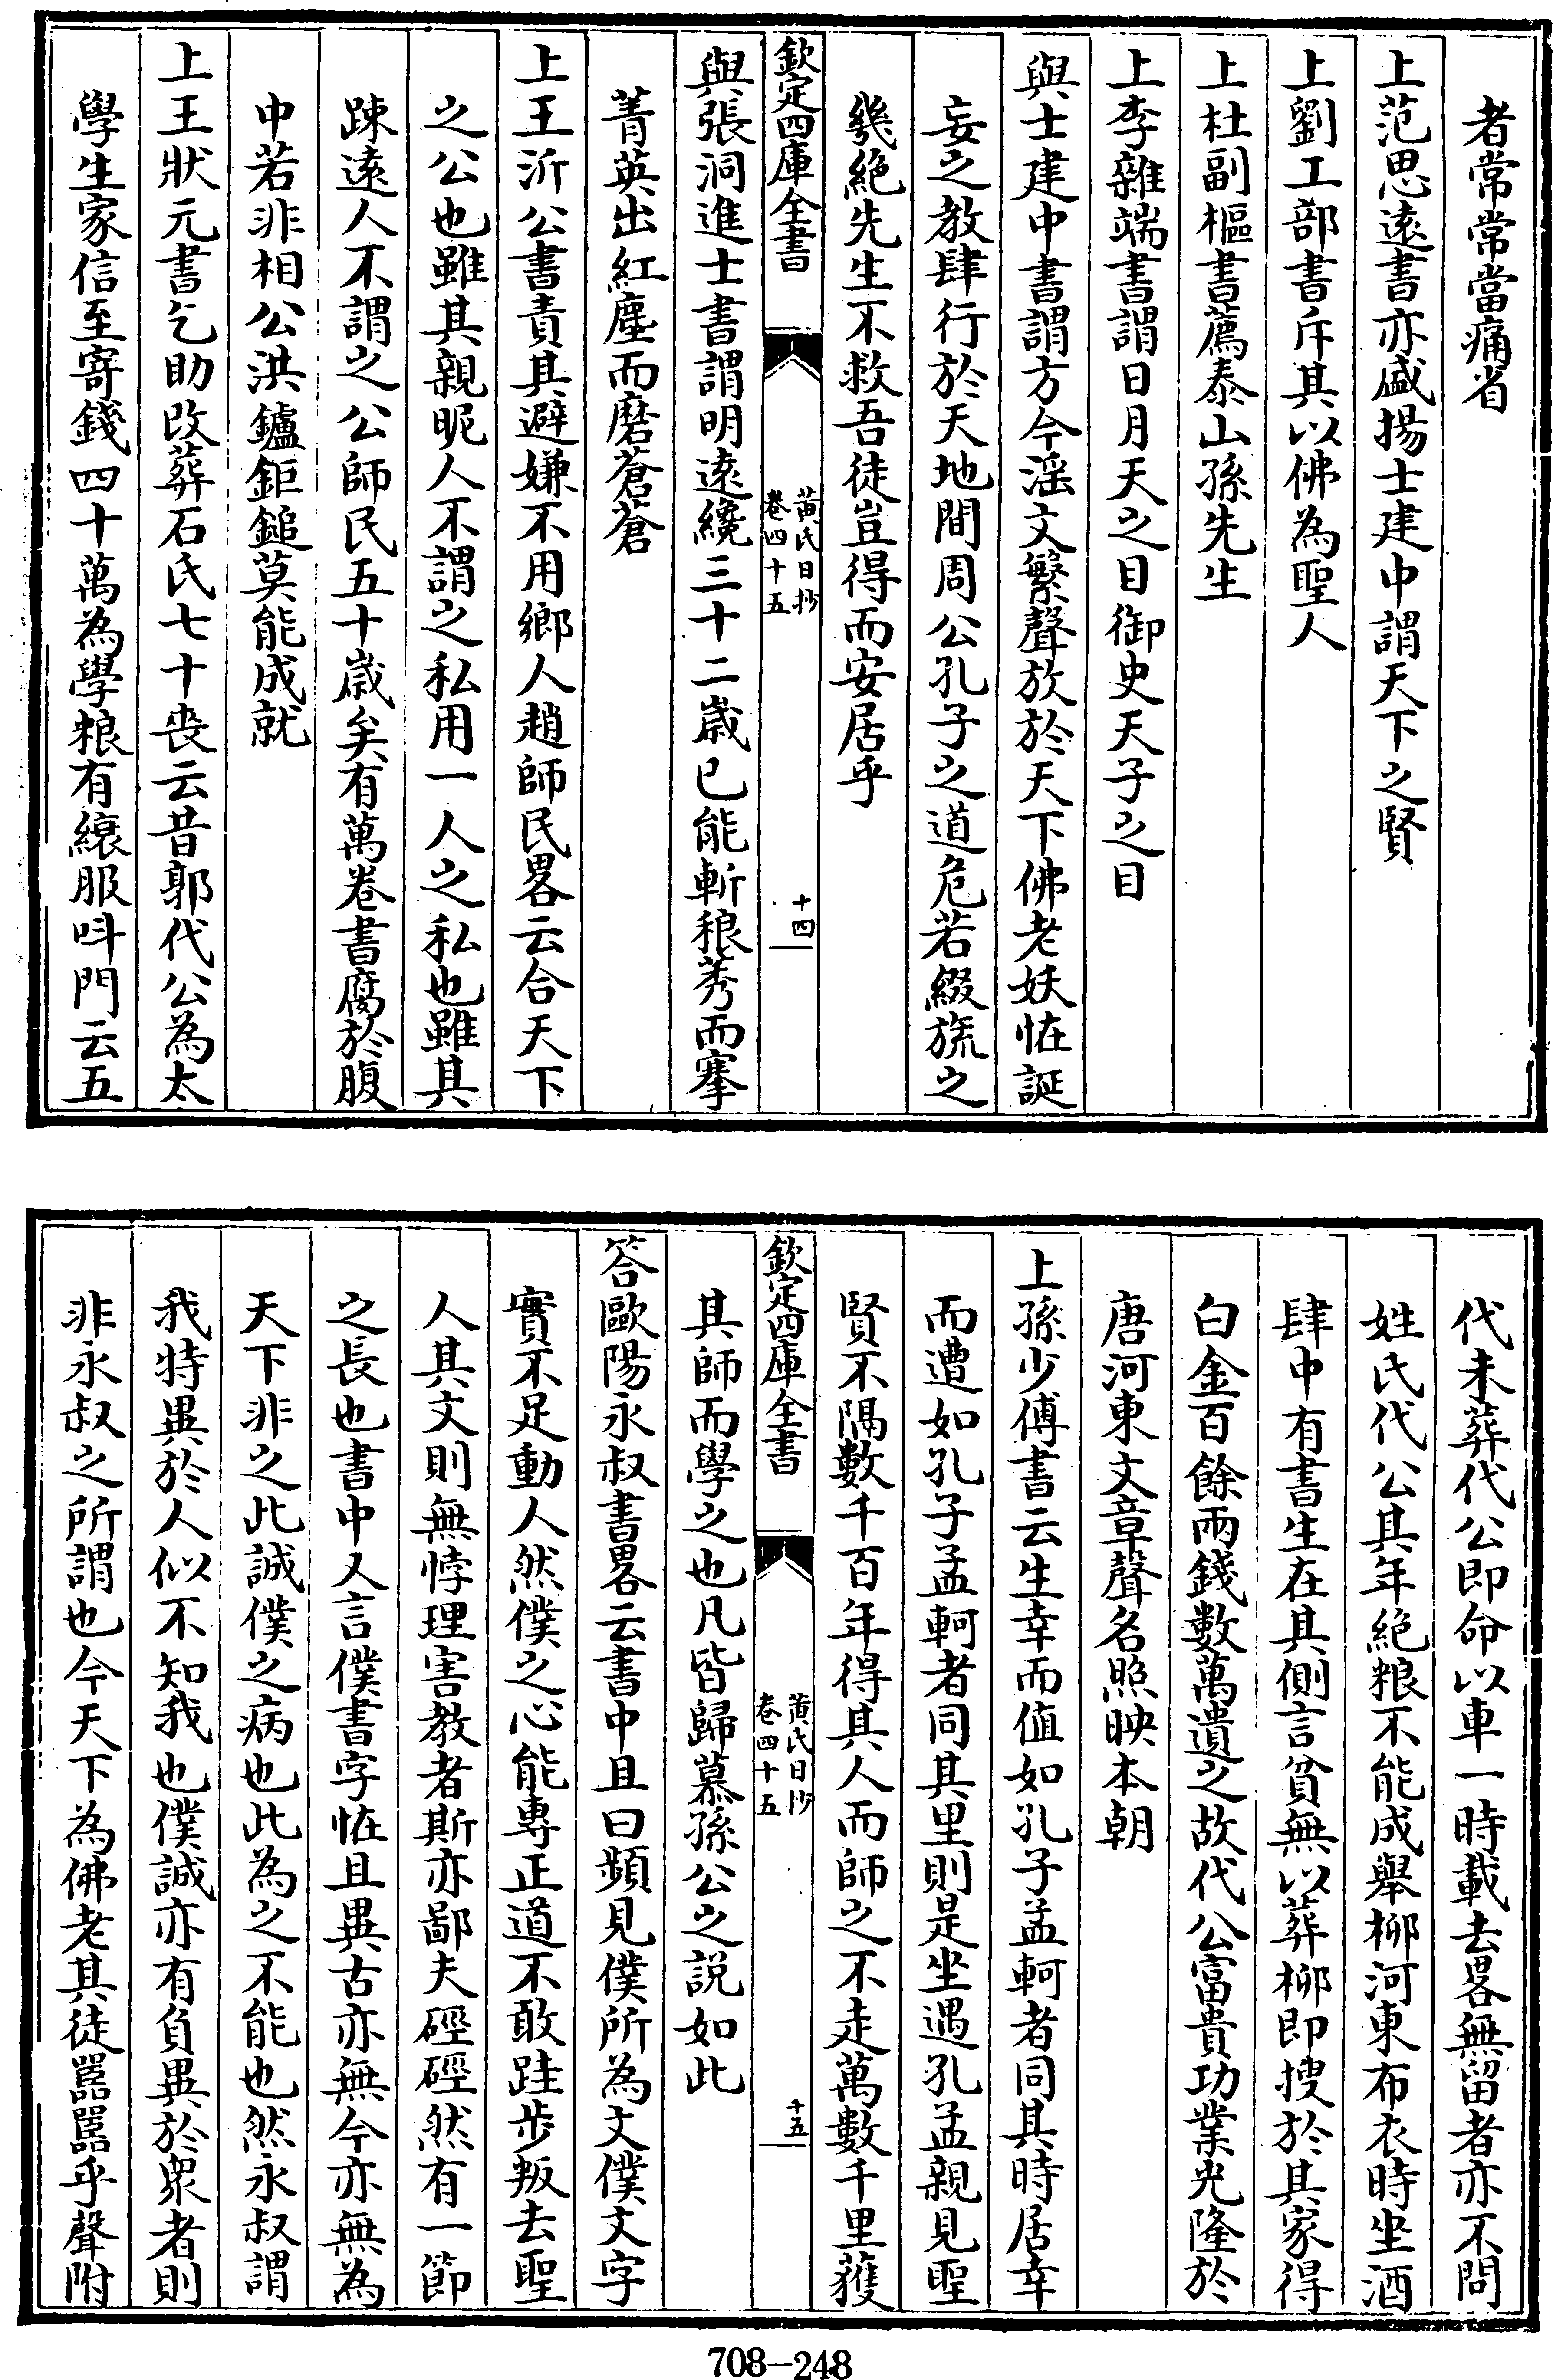 者常常當痛省
上范思遠書亦盛揚士建中謂天下之賢
上劉工部書斥其以佛為聖人
上杜副樞書薦泰山孫先生
上李雜端書謂日月天之目御史天子之目
與士建中書謂方今淫文繁聲放於天下佛老妖恠誕
妄之教肆行於天地間周公孔子之道危若綴旒之
幾絶先生不救吾徒豈得而安居乎
欽定四庫全書
黄氏日抄
卷四十五
十四
與張洞進士書謂明逺纔三十二歲已能斬稂莠而搴
菁英出紅塵而磨蒼蒼
上王沂公書責其避嫌不用鄉人趙師民畧云合天下
之公也雖其親昵人不謂之私用一人之私也雖其
踈遠人不謂之公師民五十歲矣有萬卷書腐於腹
中若非相公洪鑪鉅鎚莫能成就
上王狀元書乞助改葬石氏七十喪云昔郭代公為太
學生家信至寄錢四十萬為學粮有縗服呌門云五
代未葬代公即命以車一時載去畧無留者亦不問
姓氏代公其年絶粮不能成舉柳河東布衣時坐酒
肆中有書生在其側言貧無以葬柳即搜於其家得
白金百餘兩錢數萬遺之故代公富貴功業光隆於
唐河東文章聲名照映本朝
上孫少傅書云生幸而值如孔子孟軻者同其時居幸
而遭如孔子孟軻者同其里則是坐遇孔孟親見聖
賢不隔數千百年得其人而師之不走萬數千里獲
欽定四庫全書
黄氏日抄
卷四十五
十五
其師而學之也凡皆歸慕孫公之説如此
答歐陽永叔書畧云書中且曰頻見僕所為文僕文字
實不足動人然僕之心能專正道不敢跬步叛去聖
人其文則無悖理害教者斯亦鄙夫硜硜然有一節
之長也書中又言僕書字恠且異古亦無今亦無為
天下非之此誠僕之病也此為之不能也然永叔謂
我特異於人似不知我也僕誠亦有負異於衆者則
非永叔之所謂也今天下為佛老其徒嚚嚚乎聲附
708-248